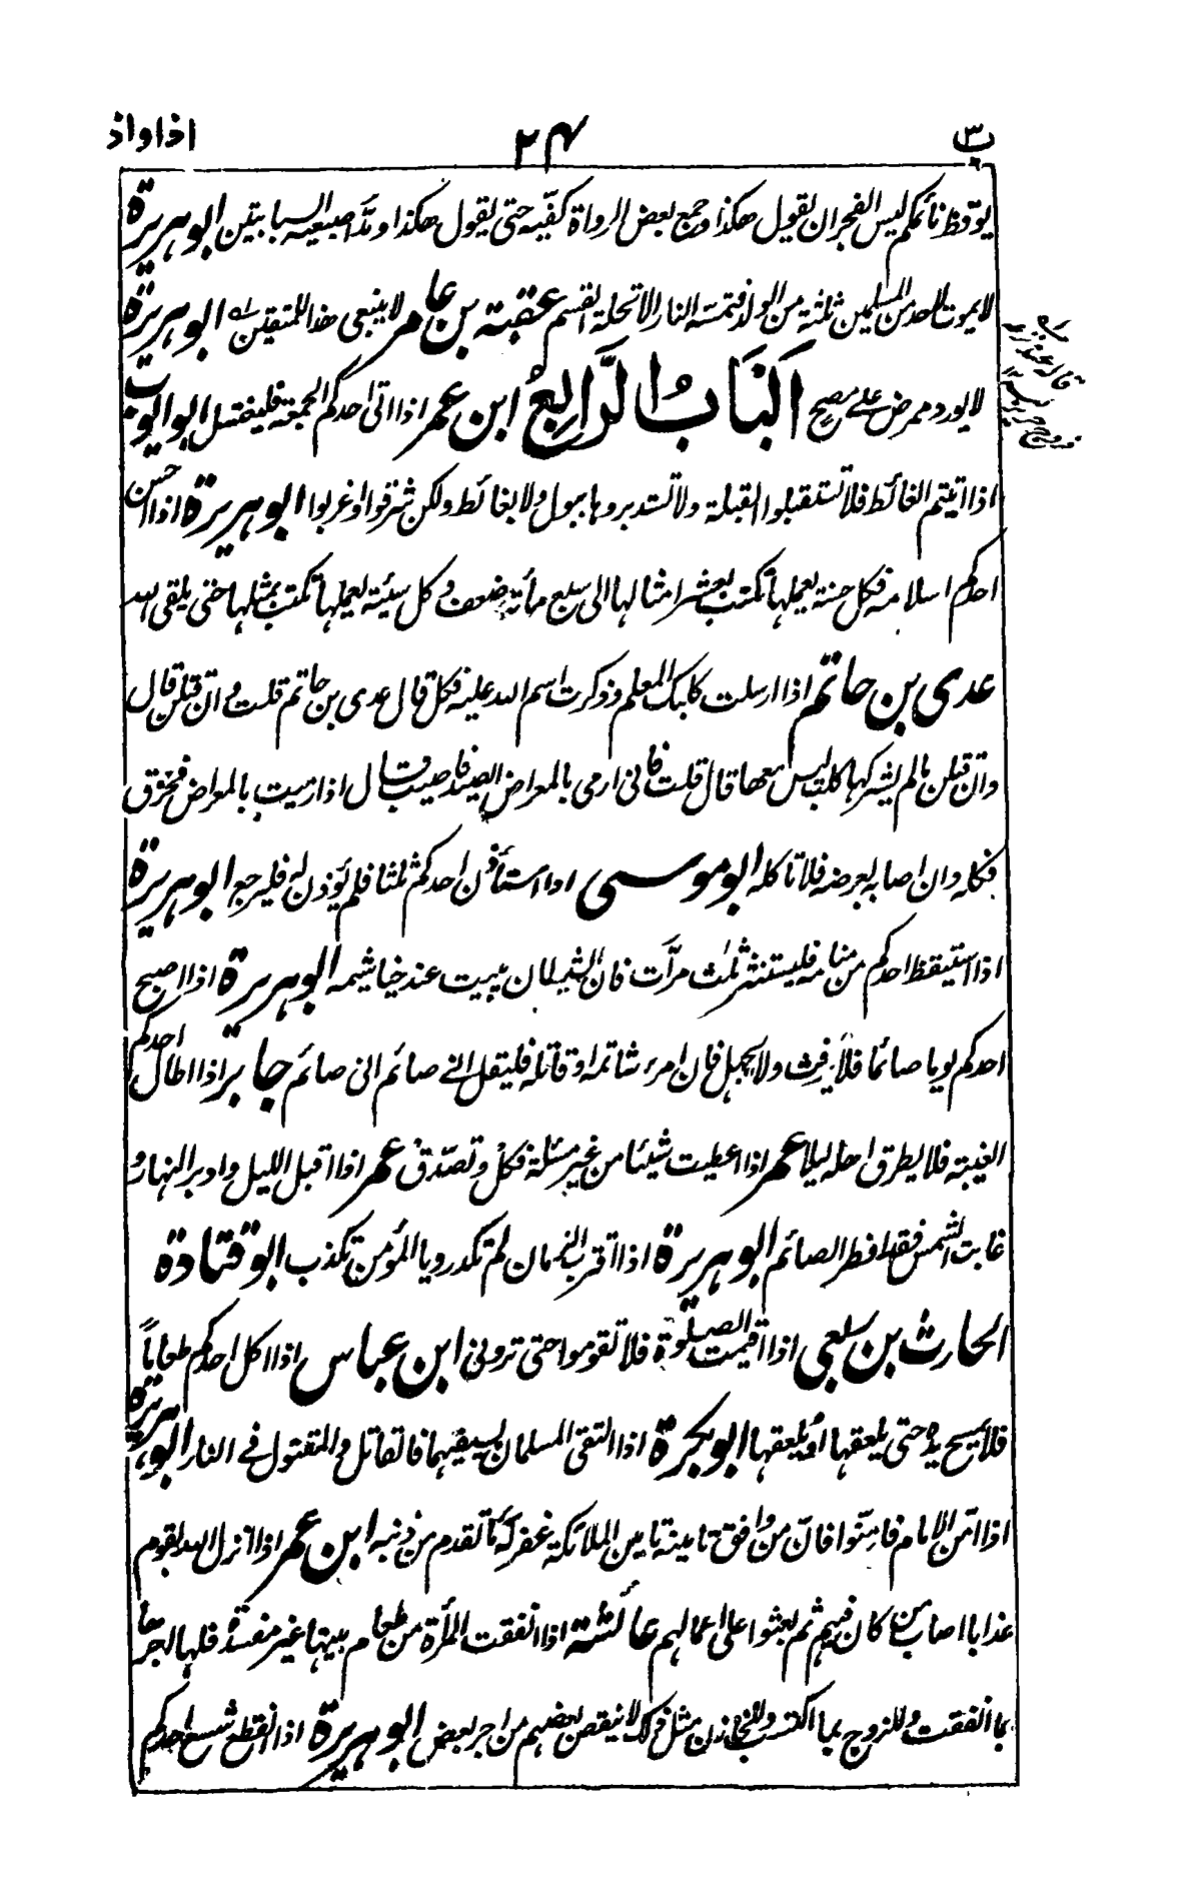 ب ٣ ٢٤ اذا واذ
يوقظ نائمكم ليس الفجر ان يقول هكذا وجمع بعض الرواة كفّيه حتى يقول هكذا ومدّ اصبعيه السبابتين ابو هريرة
لا يموت لاحد من المسلمين ثلثة من الولد فتمسه النار الا تحلة القسم عقبة بن عامر لا ينبغى هذا للمتقين ابو هريرة
لا يورد ممرض على مصح اَلْبَابُ الرَّابِعُ ابن عمر اذا اتى احدكم الجمعة فليغتسل ابو ايوب
اذا اتيتم الغائط فلا تستقبلوا القبلة ولا تستدبروها ببول ولا بغائط ولكن شرقوا او غربوا ابو هريرة اذا احسن
احدكم اسلامه فكل حسنة يعملها تكتب بعشر امثالها الى سبع مأية ضعف وكل سيئة يعملها تكتب بمثلها حتى يلقى الله
عدى بن حاتم اذا ارسلت كلبك المعلم وذكرت اسم الله عليه فكل قال عدى بن حاتم قلت وان قتلن قال
وان قتلن ما لم يشركها كلب ليس معها قال قلت فانى ارمى بالمعراض الصيد فاصيب قال اذا رميت بالمعراض فخزق
فكله وان اصابه بعرضه فلا تاكله ابو موسى اذا استأذن احدكم ثلثا فلم يؤذن له فليرجع ابو هريرة
اذا استيقظ احدكم من منامه فليستنثر ثلث مرّات فان الشيطان يبيت عند خياشيمه ابو هريرة اذا اصبح
احدكم يوما صائما فلا يرفث ولا يجهل فان امرء شاتمه او قاتله فليقل انى صائم انى صائم جابر اذا اطال احدكم
الغيبة فلا يطرق اهله ليلا عمر اذا اعطيت شيئا من غير مسئلة فكل وتصدّق عمر اذا اقبل الليل وادبر النهار و
غابت الشمس فقد افطر الصائم ابو هريرة اذا اقترب الزمان لم تكد رويا المؤمن تكذب ابو قتادة
الحارث بن ربعى اذا اقيمت الصلوة فلا تقوموا حتى ترونى ابن عباس اذا اكل احدكم طعاماً
فلا يمسح يده حتى يلعقها او يلعقها ابو بكرة اذا التقى المسلمان بسيفيهما فالقاتل والمقتول فى النار ابو هريرة
اذا امّن الامام فامّنوا فانّ من وافق تامينه تامين الملائكة غفر له ما تقدم من ذنبه ابن عمر اذا انزل الله بقوم
عذابا اصاب من كان فيهم ثم بعثوا على اعمالهم عائشة اذا انفقت المرأة من طعام بيتها غير مفسدة فلها اجرها
بما انفقت وللزوج بما اكتسب وللخازن مثل ذلك لا ينقص بعضهم من اجر بعض ابو هريرة اذا انقطع شسع احدكم